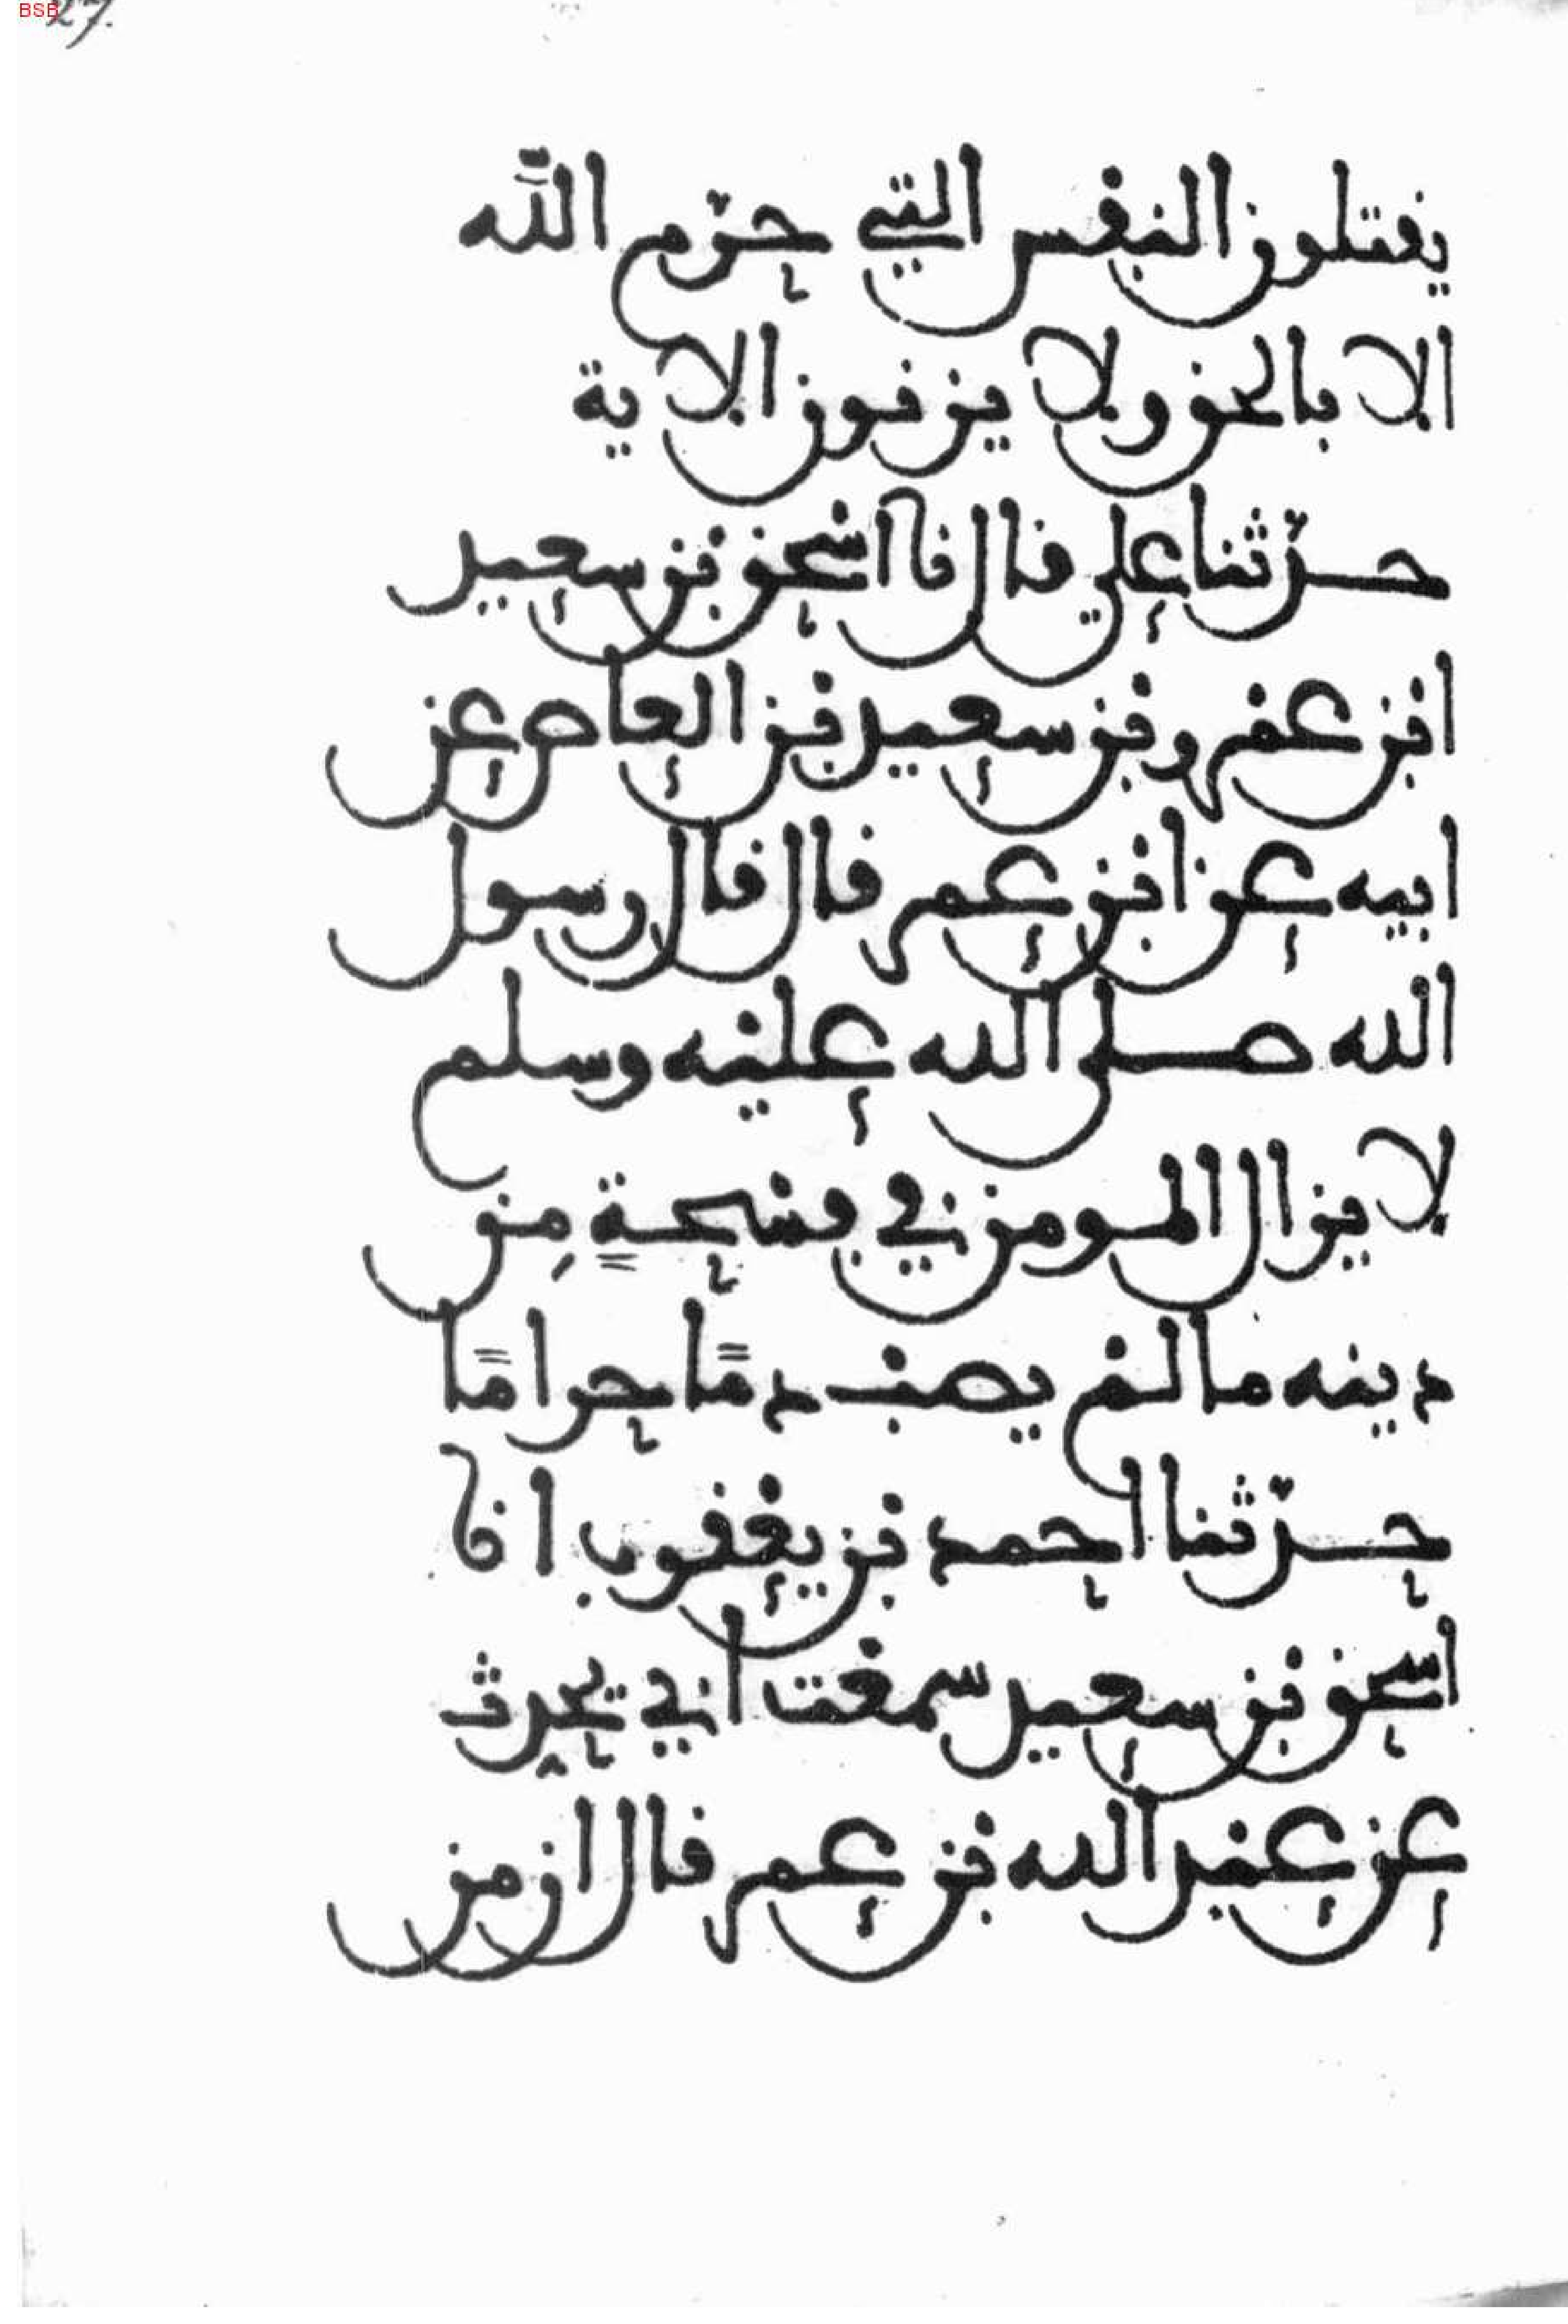 BSB
27.
يقتلون النفس التي حرّم اللّٰه
الا بالحق ولا يزنون الاية
حدّثنا علي قال نا اسْحق بْن سعيد
ابْن عمْرو بْن سعيد بْن العاص عن
ابيه عن ابْن عمر قال قال رسول
الله صلى الله عليْه وسلم
لا يزال المومن في فسْحةٍ مِن
دينه ما لمْ يصبْ دمًا حرامًا
حدّثنا احمد بْن يعْقوب انا
اسحق بْن سعيد سمعْت ابي يحدث
عن عبْد الله بْن عمر قال ان من